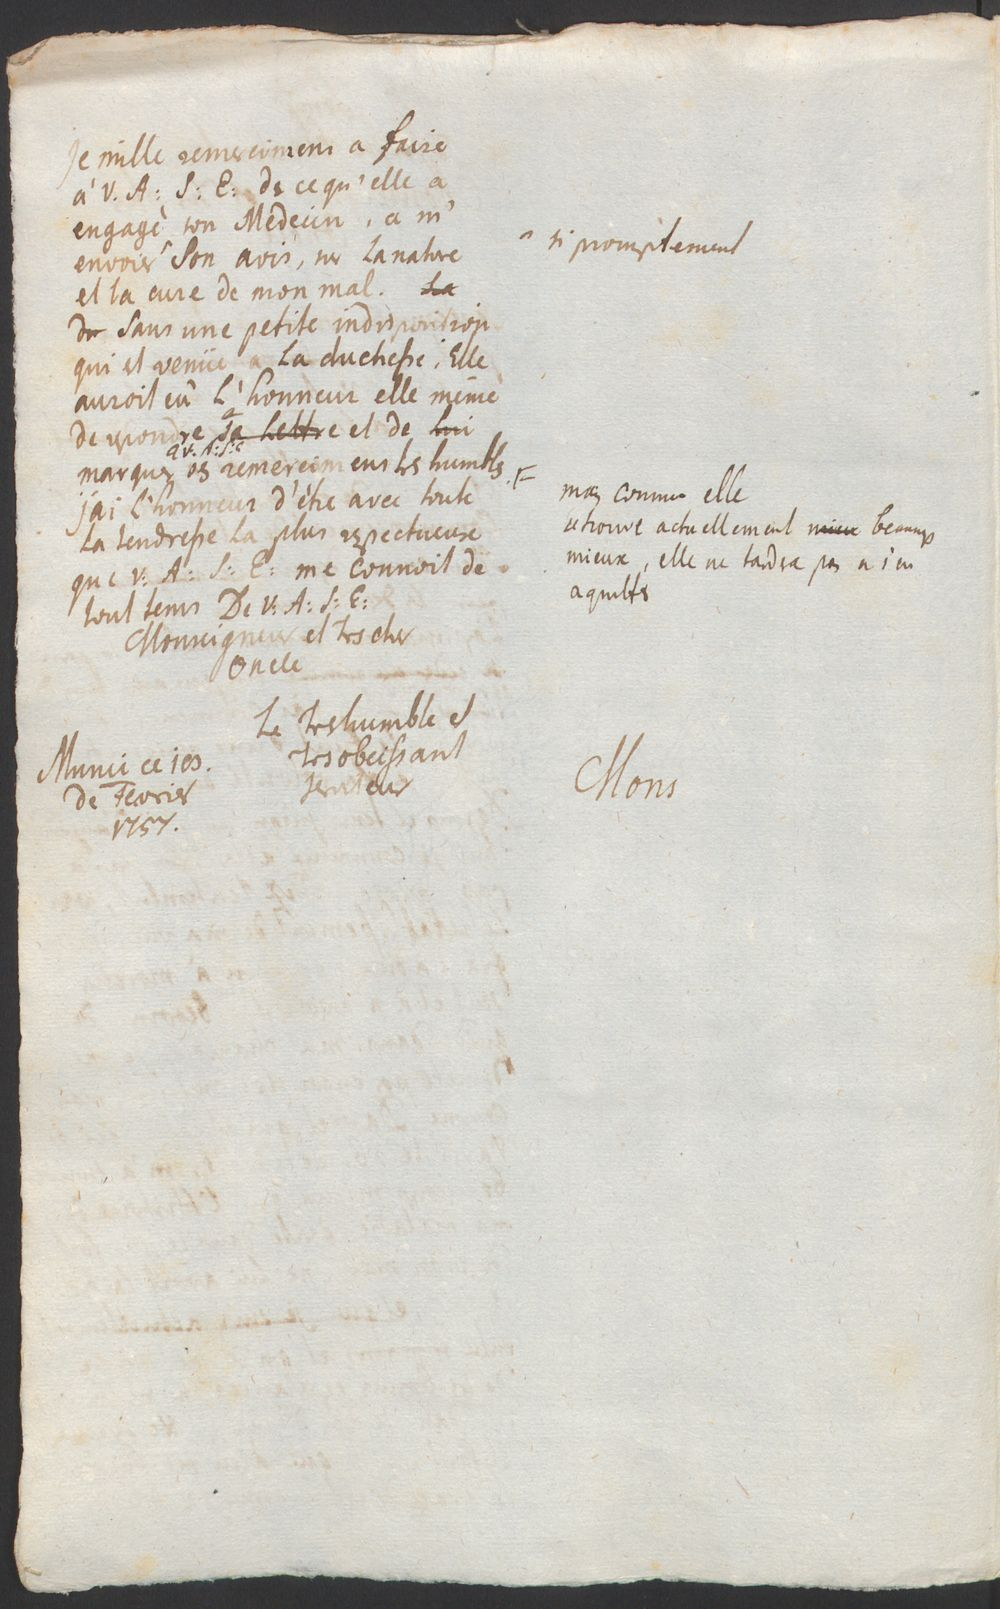 je mille remercimens a faire
à V. A: S: E: de ce qu'elle a
engagé son Médecin, a m'
envoier ^ Son avis, sur la nature
et la cure de mon mal. La
du Sans une petite indisposition
qui est venüe a La duchesse, Elle
auroit eû L'honneur elle même
de repondre a sa Lettre et de lui
a V: A: S: E
marquer ses remercimens tres humbles. F
j'ai L'honneur d'être avec toute
La tendresse La plus respectueuse
que V: A: S: E: me connoit de
tout tems De V: A: S: E:
Monseigneur et tres cher
Oncle
Le tres humble et
tres obeissant
serviteur
Munic ce 10.
de Fevrier
1757.
^ si promptement
F
mais comme elle
se trouve actuellement mieux beaucoup
mieux, elle ne tardra pas a s'en
aquitter
Mons